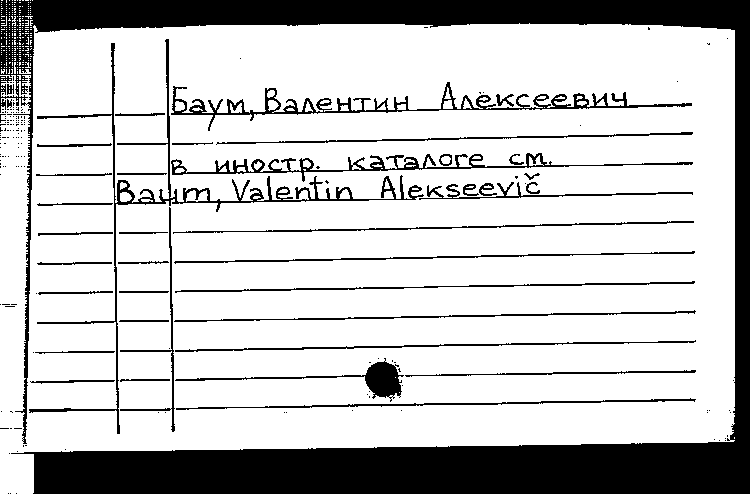 Баум, Валентин Алексеевич
в иностр. каталоге см.
Baum, Valentin Alekseevič